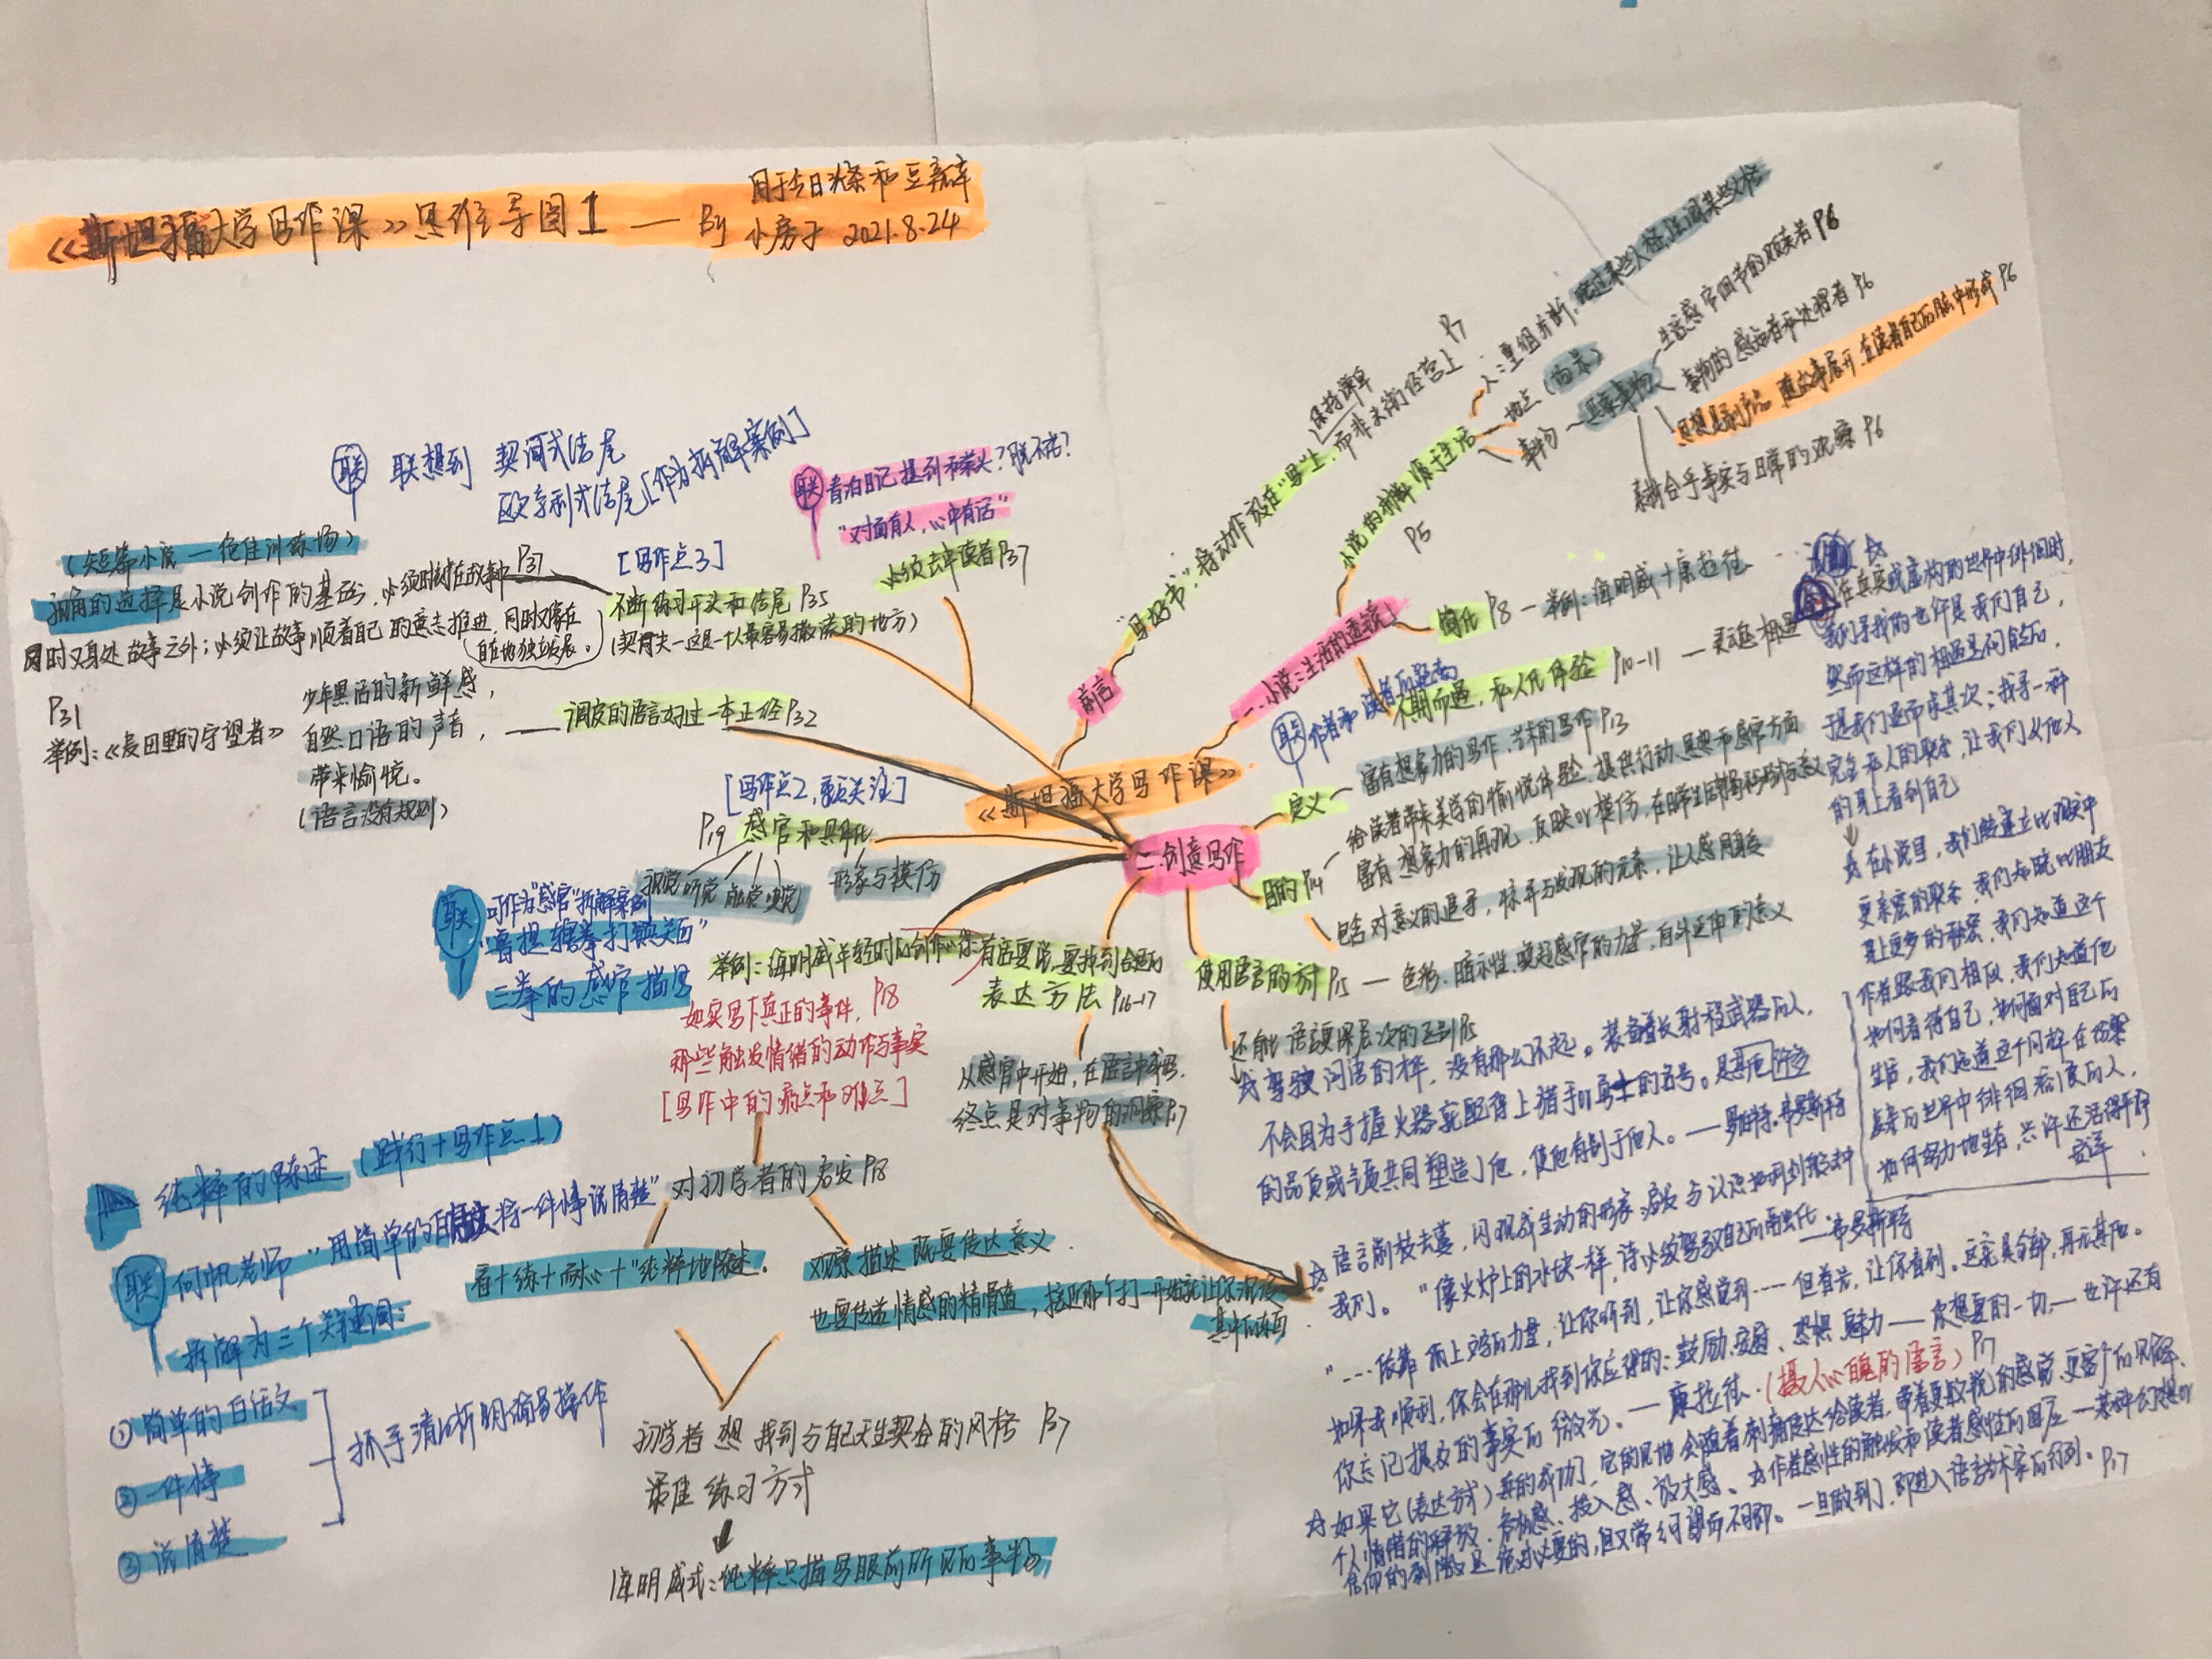 《斯坦福大学写作课》思维导图1 — By 小房子 2021.8.24
用于今日头条和豆瓣
联 联想到 契诃式结尾
欧亨利式结尾[作为拆解案例]
联 提到
"对面有人,心中有话"
必须去审读者P37
(短篇小说—绝佳训练场)
视角的选择是小说创作的基础,必须时刻在故事中P37
同时又身处故事之外;必须让故事顺着自己的意志推进,同时又像在
自在地独立发展。
P31
[写作点3]
不断练习开头和结尾P35
(契诃夫—这是个人最容易撒谎的地方)
举例:《麦田里的守望者》
少年黑话的新鲜感,
自然口语的声音,
带来愉悦。
(语言没有规则)
调皮的语言好过一本正经P32
[写作点2,亟须关注]
P19 感官和具体化
视觉 听觉 触觉 嗅觉
形象与模仿
联 可作为"感官"拆解案例
"鲁提辖拳打镇关西"
三拳的感官描写
举例:海明威年轻时的创作
如实写下真正的事件,P18
那些触发情绪的动作与事实
[写作中的痛点和难点]
对初学者的启发P18
看+练+耐心+"纯粹地陈述。
观察描述 既要传达意义
也要传送情感的精骨髓,接近那个打一开始就让你沉浸
其中的东西
初学者想找到与自己天生契合的风格 P37
最佳练习方式
海明威式:纯粹只描写眼前所见的事物
纯粹的陈述 (践行+写作点1)
联 何帆老师"用简单的白话文将一件事说清楚"
拆解为三个关键词:
①简单的白话文
②一件事
③说清楚
抓手清晰明确易操作
《斯坦福大学写作课》
前言
"写好书":将动作放在"写"上,而非文简经营上 P7
保持谦卑
一.小说:生活的透镜
小说的材料源于生活
P5
人:重组切断,
地点(齿示)
事物
具象事物
生活感官细节的贩卖者 P6
事物的感知者和处理者 P6
思想是副产品,随故事展开,在读者自己的脑中形成 P6
素材合乎事实与日常的观察 P6
简化 P8 — 举例:海明威+康拉德
不期而遇,私人化体验 P10-11 — 灵魂相遇
在真实或虚构的世界中徘徊时,
我们寻找的也许是我们自己,
然而这样的相遇是不可能的,
于是我们退而求其次:找寻一种
完全私人的联合,让我们从他人
的身上看到自己
在小说里,我们能建立比现实中
更亲密的联系,我们知晓比朋友
身上更多的秘密,我们知道这个
作者跟我们相似,我们知道他
如何看待自己,如何面对自己的
生活,我们知道这个同样在伤寒
与亲历世界中徘徊和衰的人,
如何努力地生存,或许还活得平静
安详
二.创意写作
联 作者和读者的距离
定义 — 富有想象力的写作,艺术的写作 P13
目的 P14
给读者带来美学的愉悦体验,提供行动、思想和感官方面
富有想象力的再现、反映or模仿,在日常生活中揭示形与意义
包含对意义的追寻,惊异与发现的元素,让人感同身受
使用语言的方式 P15 — 色彩、暗示性、唤起感官的力量,自外延伸的意义
还有比语言更深层次的东西 P15
你有话要说,要找到合适的
表达方法 P16-17
从感官中开始,在语言中书写,
终点是对事物的洞察P17
驾驶词语的样,没有那么不起。装备着长射程武器的人,
不会因为手握火器就配得上猎手or勇士的称号。是其他许多
的品质或气质共同塑造了他,使他有别于他人。—罗伯特·弗罗斯特
语言削枝去蔓,闪现成生动的形象
我们。"像火炉上的冰块一样,诗必须驾驭自己的融化—弗罗斯特
"……依靠书面上文字的力量,让你听到,让你感觉到……但首先,让你看到。这就是全部,再无其他。
如果我顺利,你会在那儿找到你应得的:鼓励、安慰、恐惧、魅力—你想要的一切,—也许还有
你忘记提及的事实的微光。—康拉德.(摄人心魄的语言)P17
如果它(表达方式)真的成功了,它的见地会随着刺痛传达给读者,带着更敏锐的感觉、更宽广的见解、
个人情绪的释放、参加感、投入感、放大感、
信仰的刺激,这绝对必要的,但又常可望而不可即。一旦做到了,即进入语言艺术家的行列。P17